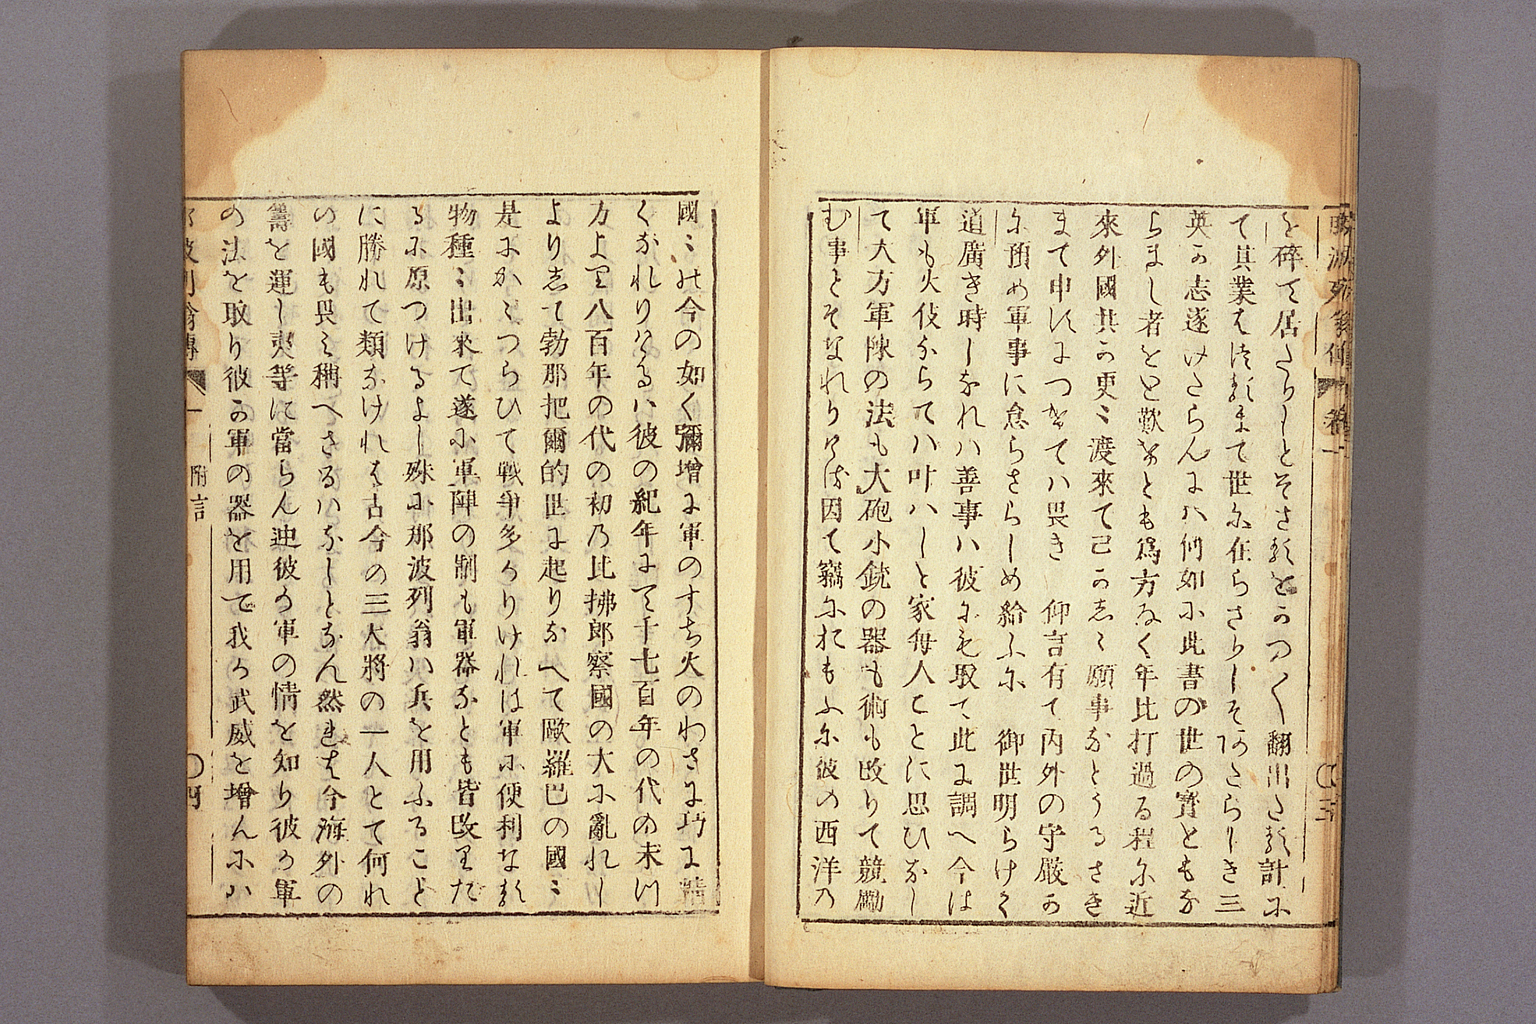 を碎て居たりしとそさるをかつ〱翻出たる計に
て其業をはるまて世に在らさりしそ口さらしき三
英の志遂けさらんには何如に此書の世の寶ともな
らまし者をと歎けとも爲方なく年比打過る程に近
來外國共の更〻渡來て己かしゝ願事なとうるさき
まて申すにつけては畏き 仰言有て内外の守嚴か
に預め軍事に怠らさらしめ給ふに 御世明らけく
道廣き時しなれは善事は彼にも取て此に調へ今は
軍も火伎ならては叶はしと家毎人ことに思ひなし
て大方軍陳の法も大砲小銃の器も術も改りて競勵
む事とそなれりける因て竊におもふに彼の西洋の
國〻は今の如く彌增に軍のすち火のわさに巧に精
くなれりけるは彼の紀年にて千七百年の代の末つ
方より八百年の代の初乃比拂郎察國の大に亂れし
よりして勃那把爾的世に起りなへて歐羅巴の國〻
是にかゝつらひて戰爭多かりけれは軍に便利なる
物種〻出來て遂に軍陣の制も軍器なとも皆改りた
るに原つけるよし殊に那波列翁は兵を用ふること
に勝れて類なけれは古今の三大將の一人とて何れ
の國も畏み稱へさるはなしとなん然れは今海外の
籌を運し夷等に當らん迚彼か軍の情を知り彼か軍
の法を取り彼の軍の器を用て我か武威を增んには
那波列翁傳 一 附言 〇四